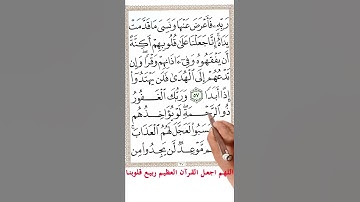 رَبِّهِۦ فَأَعْرَضَ عَنْهَا وَنَسِيَ مَا قَدَّمَتْ
يَدَاهُ إِنَّا جَعَلْنَا عَلَىٰ قُلُوبِهِمْ أَكِنَّةً
أَن يَفْقَهُوهُ وَفِىٓ ءَاذَانِهِمْ وَقْرًا وَإِن
تَدْعُهُمْ إِلَى ٱلْهُدَىٰ فَلَن يَهْتَدُوٓا۟
إِذًا أَبَدًا ٥٧ وَرَبُّكَ ٱلْغَفُورُ
ذُو ٱلرَّحْمَةِ لَوْ يُؤَاخِذُهُم
كَسَبُوا۟ لَعَجَّلَ لَهُمُ ٱلْعَذَابَ
مَّوْعِدٌ لَّن يَجِدُوا۟ مِن
اللهم اجعل القرآن العظيم ربيع قلوبنا